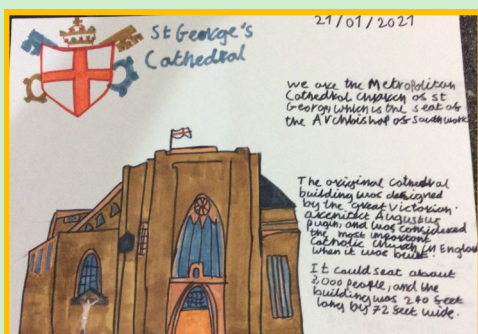 St George's
Cathedral
21/01/2021
we are the Metropolitan
Cathedral Church of St
George, which is the seat of
the Archbishop of Southwark
The original cathedral
building was designed
by the great Victorian
architect Augustus
pugin, and was considered
the most important
Catholic Church in England
when it was built.
It could seat about
2,000 people, and the
building was 240 feet
long by 72 feet wide.